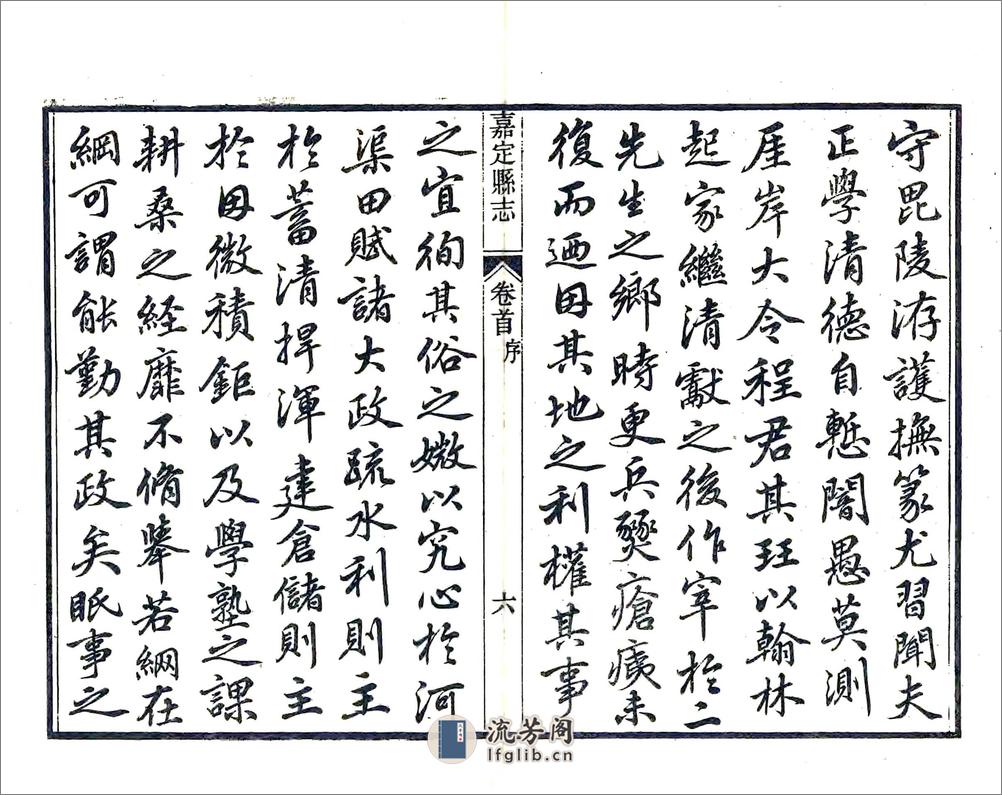 守毘陵洊護撫篆尤習聞夫
正學清德自慙闇愚莫測
厓岸大令程君其珏以翰林
起家繼清獻之後作宰於二
先生之鄉時更兵燹瘡痍未
復而迺因其地之利權其事
嘉定縣志
卷首
序
六
之宜徇其俗之媺以究心於河
渠田賦諸大政疏水利則主
於蓄清捍渾建倉儲則主
於因微積鉅以及學塾之課
耕桑之經靡不脩舉若網在
綱可謂能勤其政矣眂事之
流芳阁
lfglib.cn